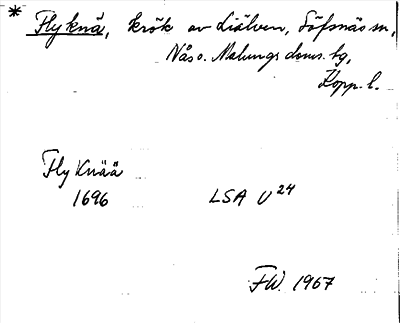 * Flyknä, krök av Liälven, Säfsnäs sn,
Nås o. Malungs doms. hg,
Kopp. l.
Fly Knää
1696 LSA U 24
FW. 1967